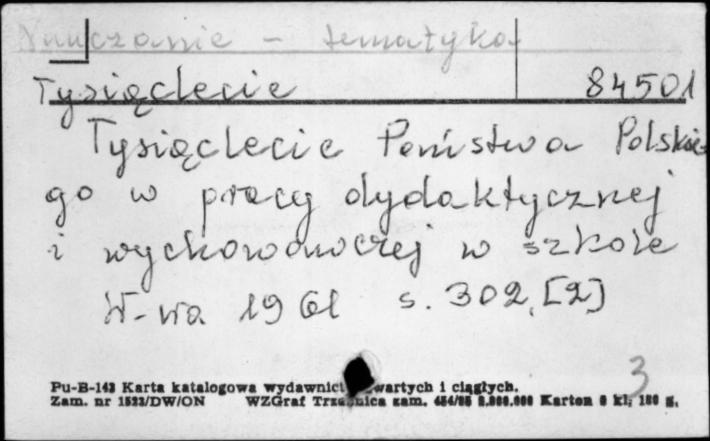 Nauczanie - tematyka
Tysiąclecie 84501
Tysiąclecie Państwa Polskie-
go w pracy dydaktycznej
i wychowawczej w szkole
W-wa 1961 s. 302,[2]
3
Pu-B-143 Karta katalogowa wydawnict wartych i ciągłych.
Zam. nr 1523/DW/ON WZGraf Trz nica zam. Karton kl.